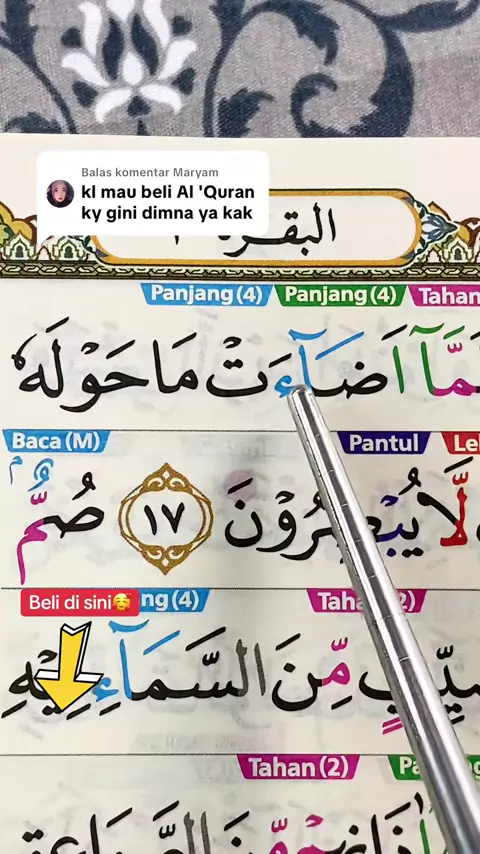 Balas komentar Maryam
kl mau beli Al 'Quran
ky gini dimna ya kak
البقرة
Panjang (4) Panjang (4) Tahan
أَضَآءَتْ مَا حَوْلَهٗ
Baca (M) Pantul
لَّا يُبْصِرُوْنَ ١٧ صُمٌّ
Beli di sini🥰
مِّنَ السَّمَآءِ فِيْهِ
Tahan (2)